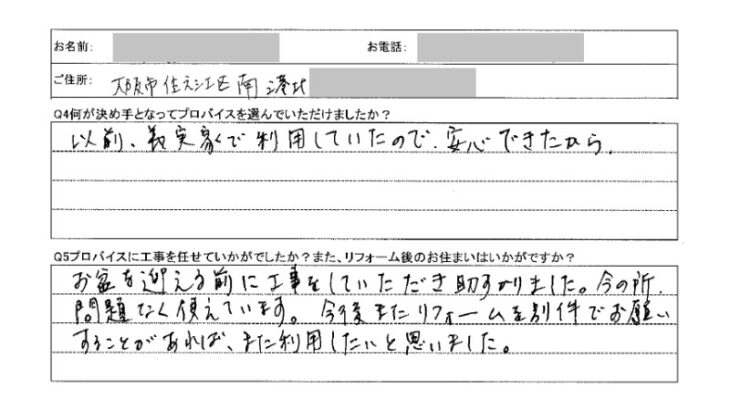 お名前: お電話:
ご住所: 大阪市住之江区南港北
Q4何が決め手となってプロバイスを選んでいただけましたか?
以前、義実家で利用していたので、安心できたから。
Q5プロバイスに工事を任せていかがでしたか?また、リフォーム後のお住まいはいかがですか?
お盆を迎える前に工事をしていただき助すかりました。今の所、
問題なく使えています。今後またリフォームを別件でお願い
することがあれば、また利用したいと思いました。